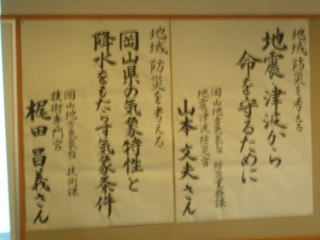 地域防災を考える
地震 津波から
命を守るために
岡山地方気象台 防災業務課
地震津波防災官
山本 文夫さん
地域防災を考える
岡山県の気象特性と
降水をもたらす気象条件
岡山地方気象台 技術課
技術専門官
梶田 昌義さん